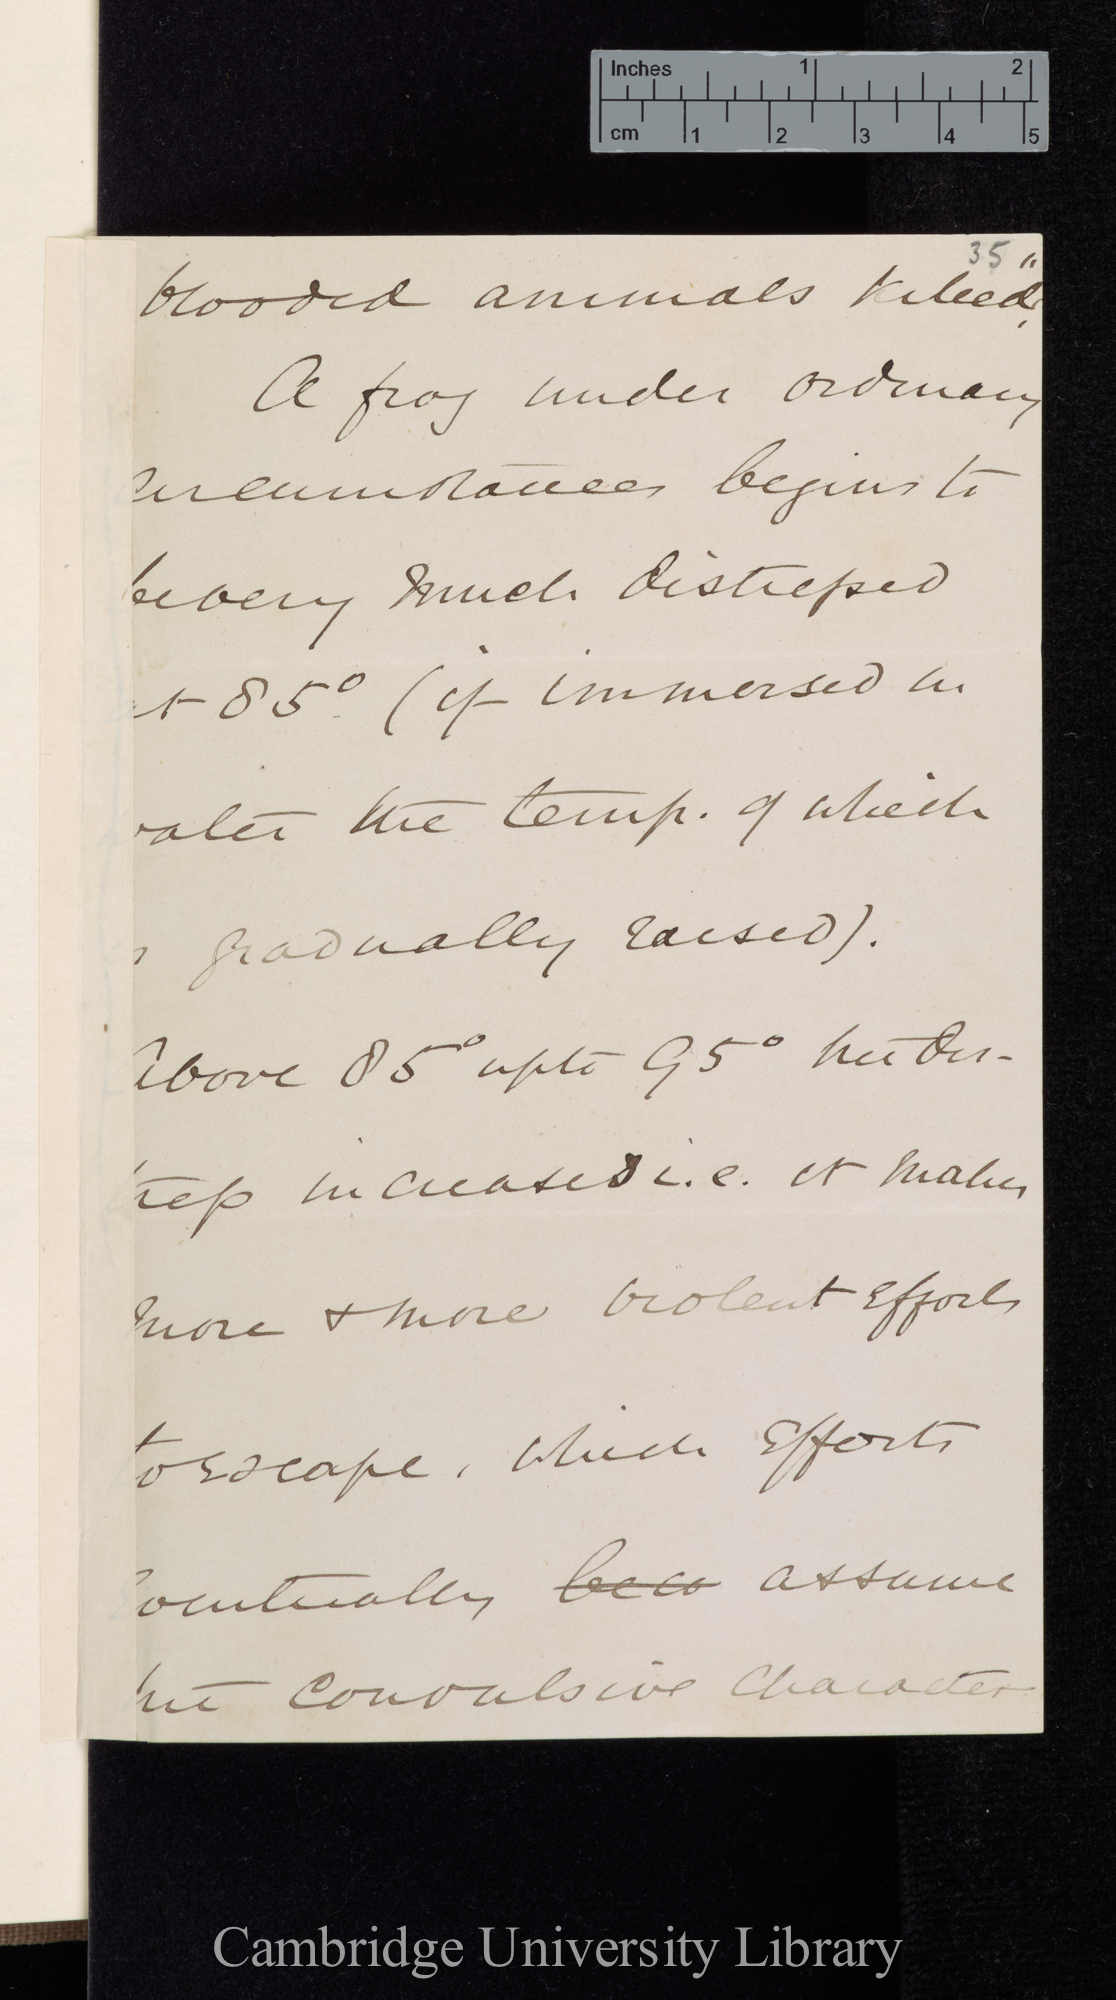 Inches 1 2
cm 1 2 3 4 5
35
blooded animals killed."
A frog under ordinary
circumstances begins to
be very much distressed
at 85° (if immersed in
water the temp. of which
is gradually raised).
Above 85° up to 95° the dis-
tress increases i.e. it makes
more & more violent efforts
to escape, which efforts
eventually beco assume
the convulsive character
Cambridge University Library